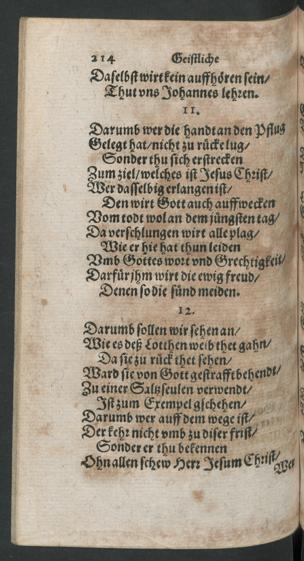 214 Geistliche
Daselbst wirt kein auffhören sein/
Thut vns Johannes lehren.
11.
Darumb wer die handt an den Pflug
Gelegt hat/nicht zu rücke lug/
Sonder thu sich erstrecken
Zum ziel/welches ist Jesus Christ/
Wer dasselbig erlangen ist/
Den wirt Gott auch auffwecken
Vom todt wol an dem jüngsten tag/
Da verschlungen wirt alle plag/
Wie er hie hat thun leiden
Vmb Gottes wort vnd Grechtigkeit/
Darfür jhm wirt die ewig freud/
Denen so die sünd meiden.
12.
Darumb sollen wir sehen an/
Wie es deß Lotthen weib thet gahn/
Da sie zu rück thet sehen/
Ward sie von Gott gestrafft behendt/
Zu einer Saltzseulen verwendt/
Ist zum Exempel gschehen/
Darumb wer auff dem wege ist/
Der kehr nicht vmb zu diser frist/
Sonder er thu bekennen
Ohn allen schew Herr Jesum Christ/
Wer